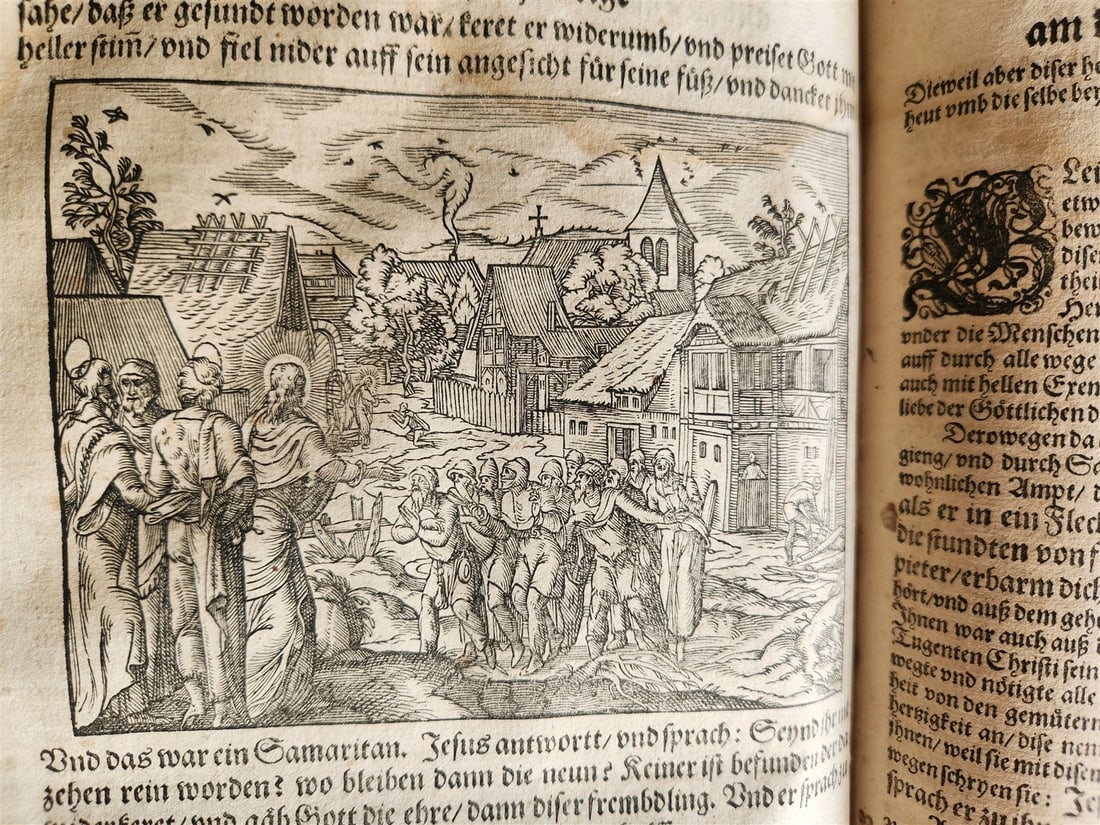 sahe/ daß er gesundt worden war/ keret er widerumb/ vnd preiset Gott
heller stim̃/ vnd fiel nider auff sein angesicht für seine füß/ vnd dancket
Vnd das war ein Samaritan. Jesus antwortt/ vnd sprach: Seynd
zehen rein worden? wo bleiben dann die neun? Keiner ist befunden der da
vnd gäb Gott die ehre/ dann diser frembdling. Vnd er sprach zu
am
Dieweil aber diser
heut vmb die selbe
Lei
etw
bew
diser
thei
Her
vnder die Menschen
auff durch alle wege
auch mit hellen Exem
liebe der Göttlichen
Derowegen da
gieng/ vnd durch Sa
wohnlichen Ampt/
als er in ein Flec
die stundten von
pieter/ erbarm dich
hört/ vnd auß dem
Ihnen war auch auß
Tugenten Christi sein
wegte vnd nötigte alle
heit von den gemütern
hertzigkeit an/ dise
jhnen/ weil sie mit disen
wegen schryen sie:
sprach er zu